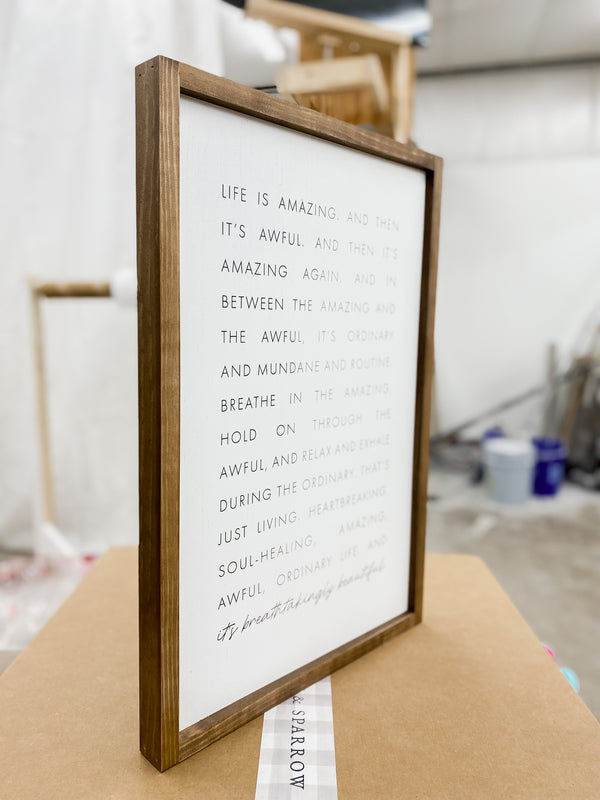 LIFE IS AMAZING. AND THEN
IT'S AWFUL. AND THEN IT'S
AMAZING AGAIN. AND IN
BETWEEN THE AMAZING AND
THE AWFUL, IT'S ORDINARY
AND MUNDANE AND ROUTINE
BREATHE IN THE AMAZING,
HOLD ON THROUGH THE
AWFUL, AND RELAX AND EXHALE
DURING THE ORDINARY. THAT'S
JUST LIVING. HEARTBREAKING,
SOUL-HEALING, AMAZING,
AWFUL, ORDINARY LIFE. AND
it's breathtakingly beautiful.
& SPARROW